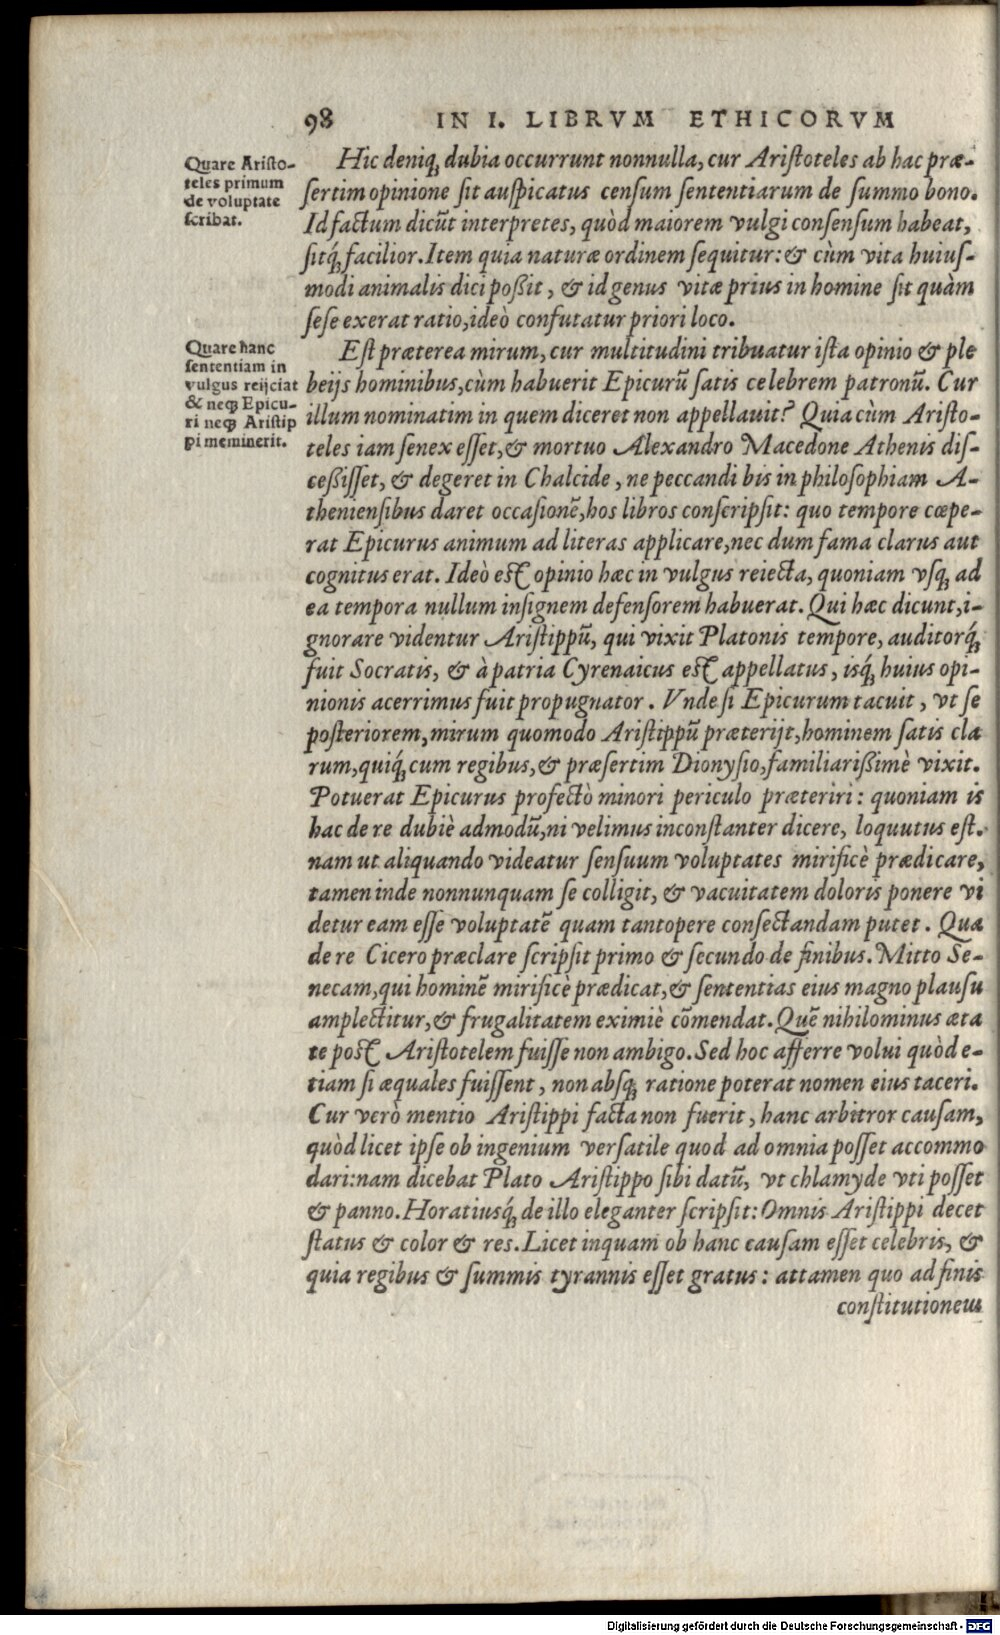 98 IN I. LIBRVM ETHICORVM
Quare Aristo-
teles primum
de voluptate
scribat.
Hic deniq; dubia occurrunt nonnulla, cur Aristoteles ab hac præ-
sertim opinione sit auspicatus censum sententiarum de summo bono.
Id factum dicūt interpretes, quòd maiorem vulgi consensum habeat,
sitq́; facilior. Item quia naturæ ordinem sequitur: & cùm vita huius-
modi animalis dici poßit, & id genus vitæ prius in homine sit quàm
sese exerat ratio, ideò confutatur priori loco.
Quare hanc
sententiam in
vulgus reijciat
& neq; Epicu-
ri neq; Aristip
pi meminerit.
Est præterea mirum, cur multitudini tribuatur ista opinio & ple
beijs hominibus, cùm habuerit Epicurū satis celebrem patronū. Cur
illum nominatim in quem diceret non appellauit? Quia cùm Aristo-
teles iam senex esset, & mortuo Alexandro Macedone Athenis dis-
ceßisset, & degeret in Chalcide, ne peccandi bis in philosophiam A-
theniensibus daret occasionē, hos libros conscripsit: quo tempore cœpe-
rat Epicurus animum ad literas applicare, nec dum fama clarus aut
cognitus erat. Ideò est opinio hæc in vulgus reiecta, quoniam vsq; ad
ea tempora nullum insignem defensorem habuerat. Qui hæc dicunt, i-
gnorare videntur Aristippū, qui vixit Platonis tempore, auditorq́;
fuit Socratis, & à patria Cyrenaicus est appellatus, isq́; huius opi-
nionis acerrimus fuit propugnator. Vnde si Epicurum tacuit, vt se
posteriorem, mirum quomodo Aristippū præterijt, hominem satis cla
rum, quiq́; cum regibus, & præsertim Dionysio, familiarißimè vixit.
Potuerat Epicurus profectò minori periculo præteriri: quoniam is
hac de re dubiè admodū, ni velimus inconstanter dicere, loquutus est.
nam ut aliquando videatur sensuum voluptates mirificè prædicare,
tamen inde nonnunquam se colligit, & vacuitatem doloris ponere vi
detur eam esse voluptatē quam tantopere consectandam putet. Qua
de re Cicero præclare scripsit primo & secundo de finibus. Mitto Se-
necam, qui hominē mirificè prædicat, & sententias eius magno plausu
amplectitur, & frugalitatem eximiè cōmendat. Quē nihilominus æta
te post Aristotelem fuisse non ambigo. Sed hoc afferre volui quòd e-
tiam si æquales fuissent, non absq; ratione poterat nomen eius taceri.
Cur verò mentio Aristippi facta non fuerit, hanc arbitror causam,
quòd licet ipse ob ingenium versatile quod ad omnia posset accommo
dari: nam dicebat Plato Aristippo sibi datū, vt chlamyde vti posset
& panno. Horatiusq́; de illo eleganter scripsit: Omnis Aristippi decet
status & color & res. Licet inquam ob hanc causam esset celebris, &
quia regibus & summis tyrannis esset gratus: attamen quo ad finis
constitutionem
Digitalisierung gefördert durch die Deutsche Forschungsgemeinschaft - DFG